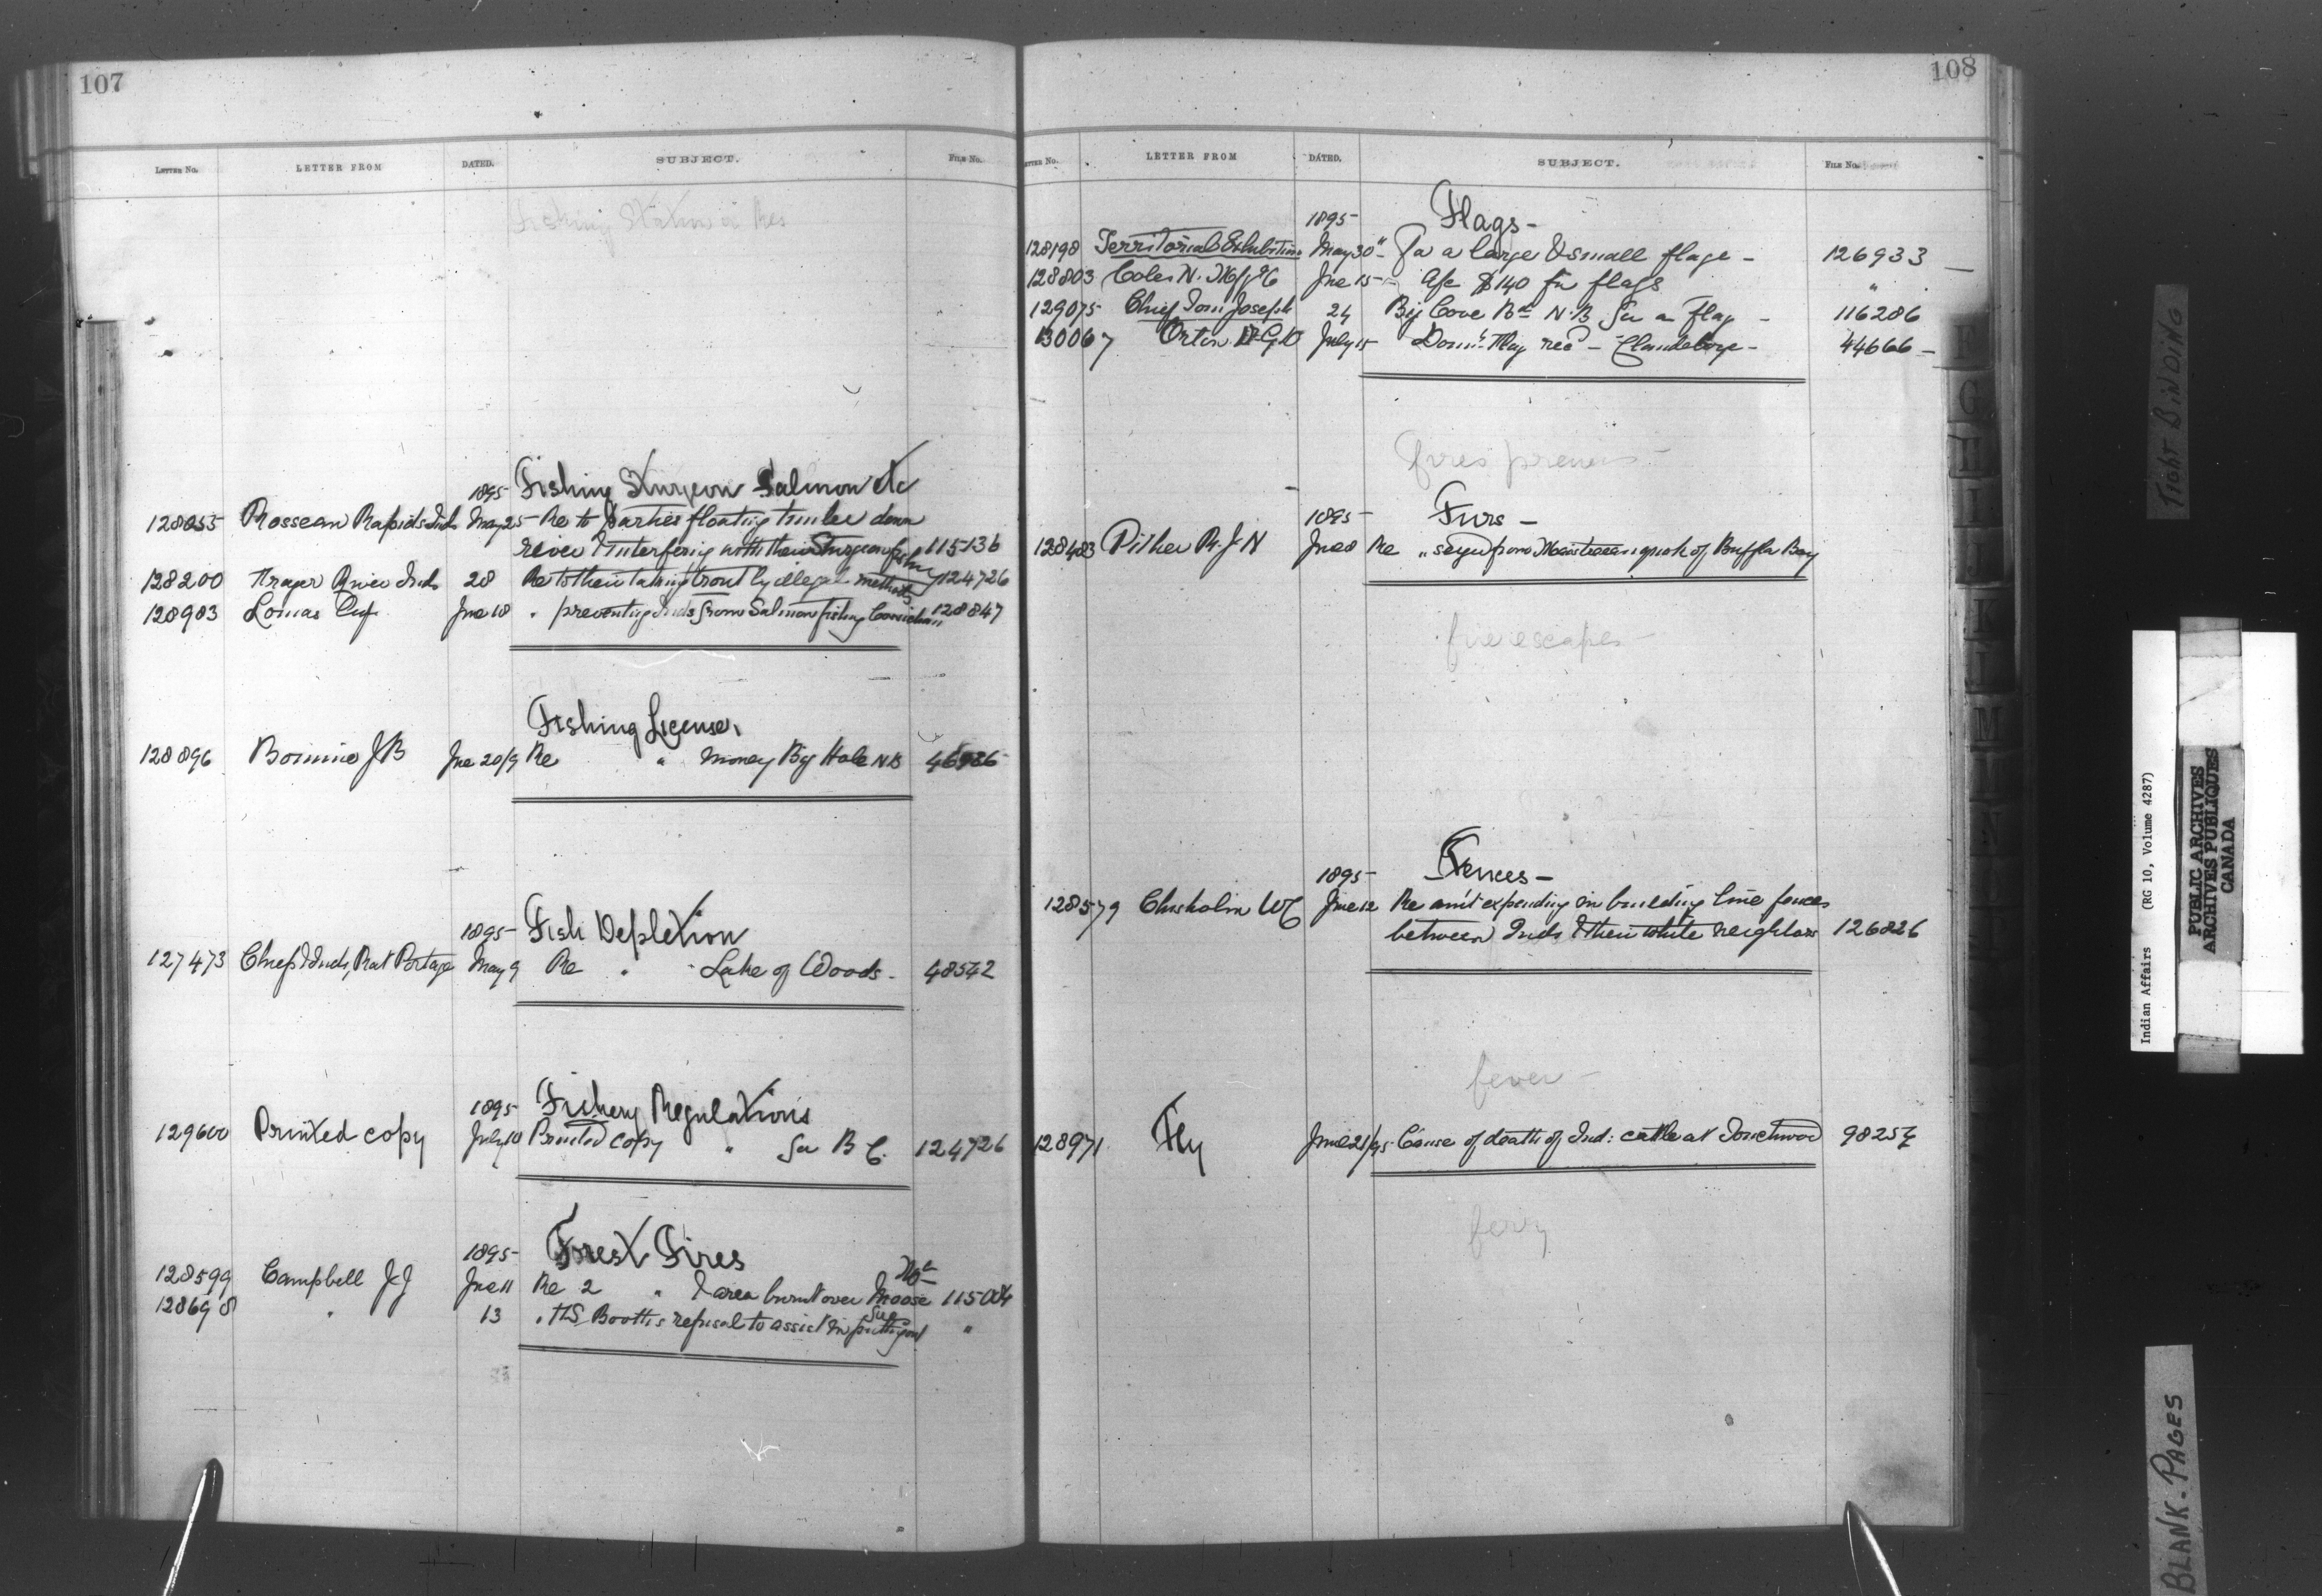 107
LETTER NO. LETTER FROM DATED. SUBJECT. FILE NO.
Fishing Station a Res
1895 Fishing Sturgeon Salmon etc
128055 Rosseau Rapids Inds May 25 Re to parties floating timber down
river & interfering with their Sturgeon fishy 115136
128200 River Inds 28 Re to their taking trout by illegal methods 124726
128983 Lomas Jne 18 " preventing Inds from Salmon fishing Cowichan 128847
Fishing License.
128896 J B Jne 20/9 Re " money Big Hole NB
1895 Fish Depletion
127473 Chief & Inds, Rat Portage May 9 Re " Lake of Woods - 48542
1895 Fishery Regulations
129600 Printed copy July 10 Printed copy " for B C. 124726
1895 Forest Fires
Mtn
128599 Campbell J J Jne 11 Re 2 " & area burnt over Moose 115004
128698 " 13 " H.S. Booth's refusal to assist in putting out "
108
LETTER NO. LETTER FROM DATED. SUBJECT. FILE NO.
1895 Flags -
128198 Territorial Exhibition May 30 For a large & small flage - 126933
128803 Coles N. Mfg Co Jne 15 - a/c $140 for flags "
129075 Chief Tom Joseph 24 Big Cove Bd N.B for a flag - 116286
130067 Orton Dr G D July 15 Domn. Flag recd - Clandeboye - 44666 -
fires prevens -
1895 Furs -
128483 Pither R. J N Jne 8 Re " from of Bufflo Bay
fire escapes -
1895 Fences -
128579 Chisholm W C June 12 Re amt expending in building line fences
between Inds & their white neighbors 126826
fever -
128971 Fly June 21/95 Cause of death of Ind: cattle at Touchwood 98254
ferry
G
H
I
J
K
L
M
N
TIGHT BINDING
Indian Affairs (RG 10, Volume 4287)
PUBLIC ARCHIVES
ARCHIVES PUBLIQUES
CANADA
BLANK - PAGES